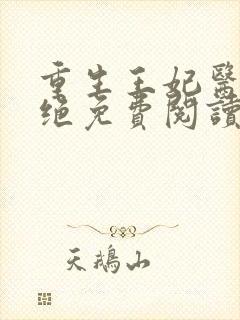 重生王妃醫
绝免費閱讀
天鵝山